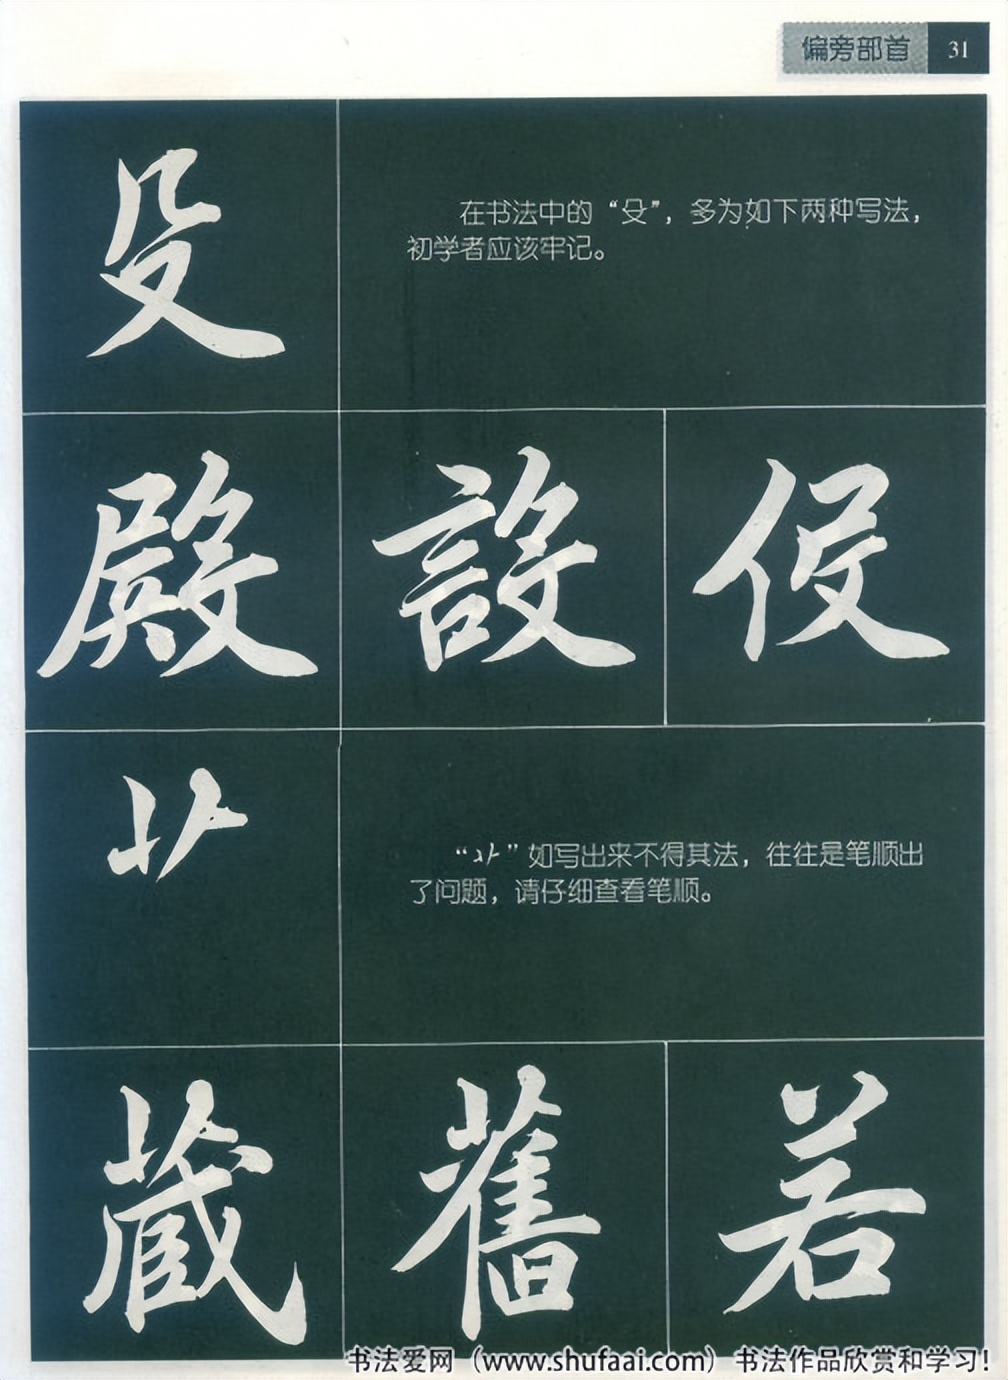 偏旁部首 31
殳
在书法中的“殳”，多为如下两种写法，
初学者应该牢记。
殿 設 役
艹
“艹”如写出来不得其法，往往是笔顺出
了问题，请仔细查看笔顺。
藏 舊 若
书法爱网（www.shufaai.com）书法作品欣赏和学习！